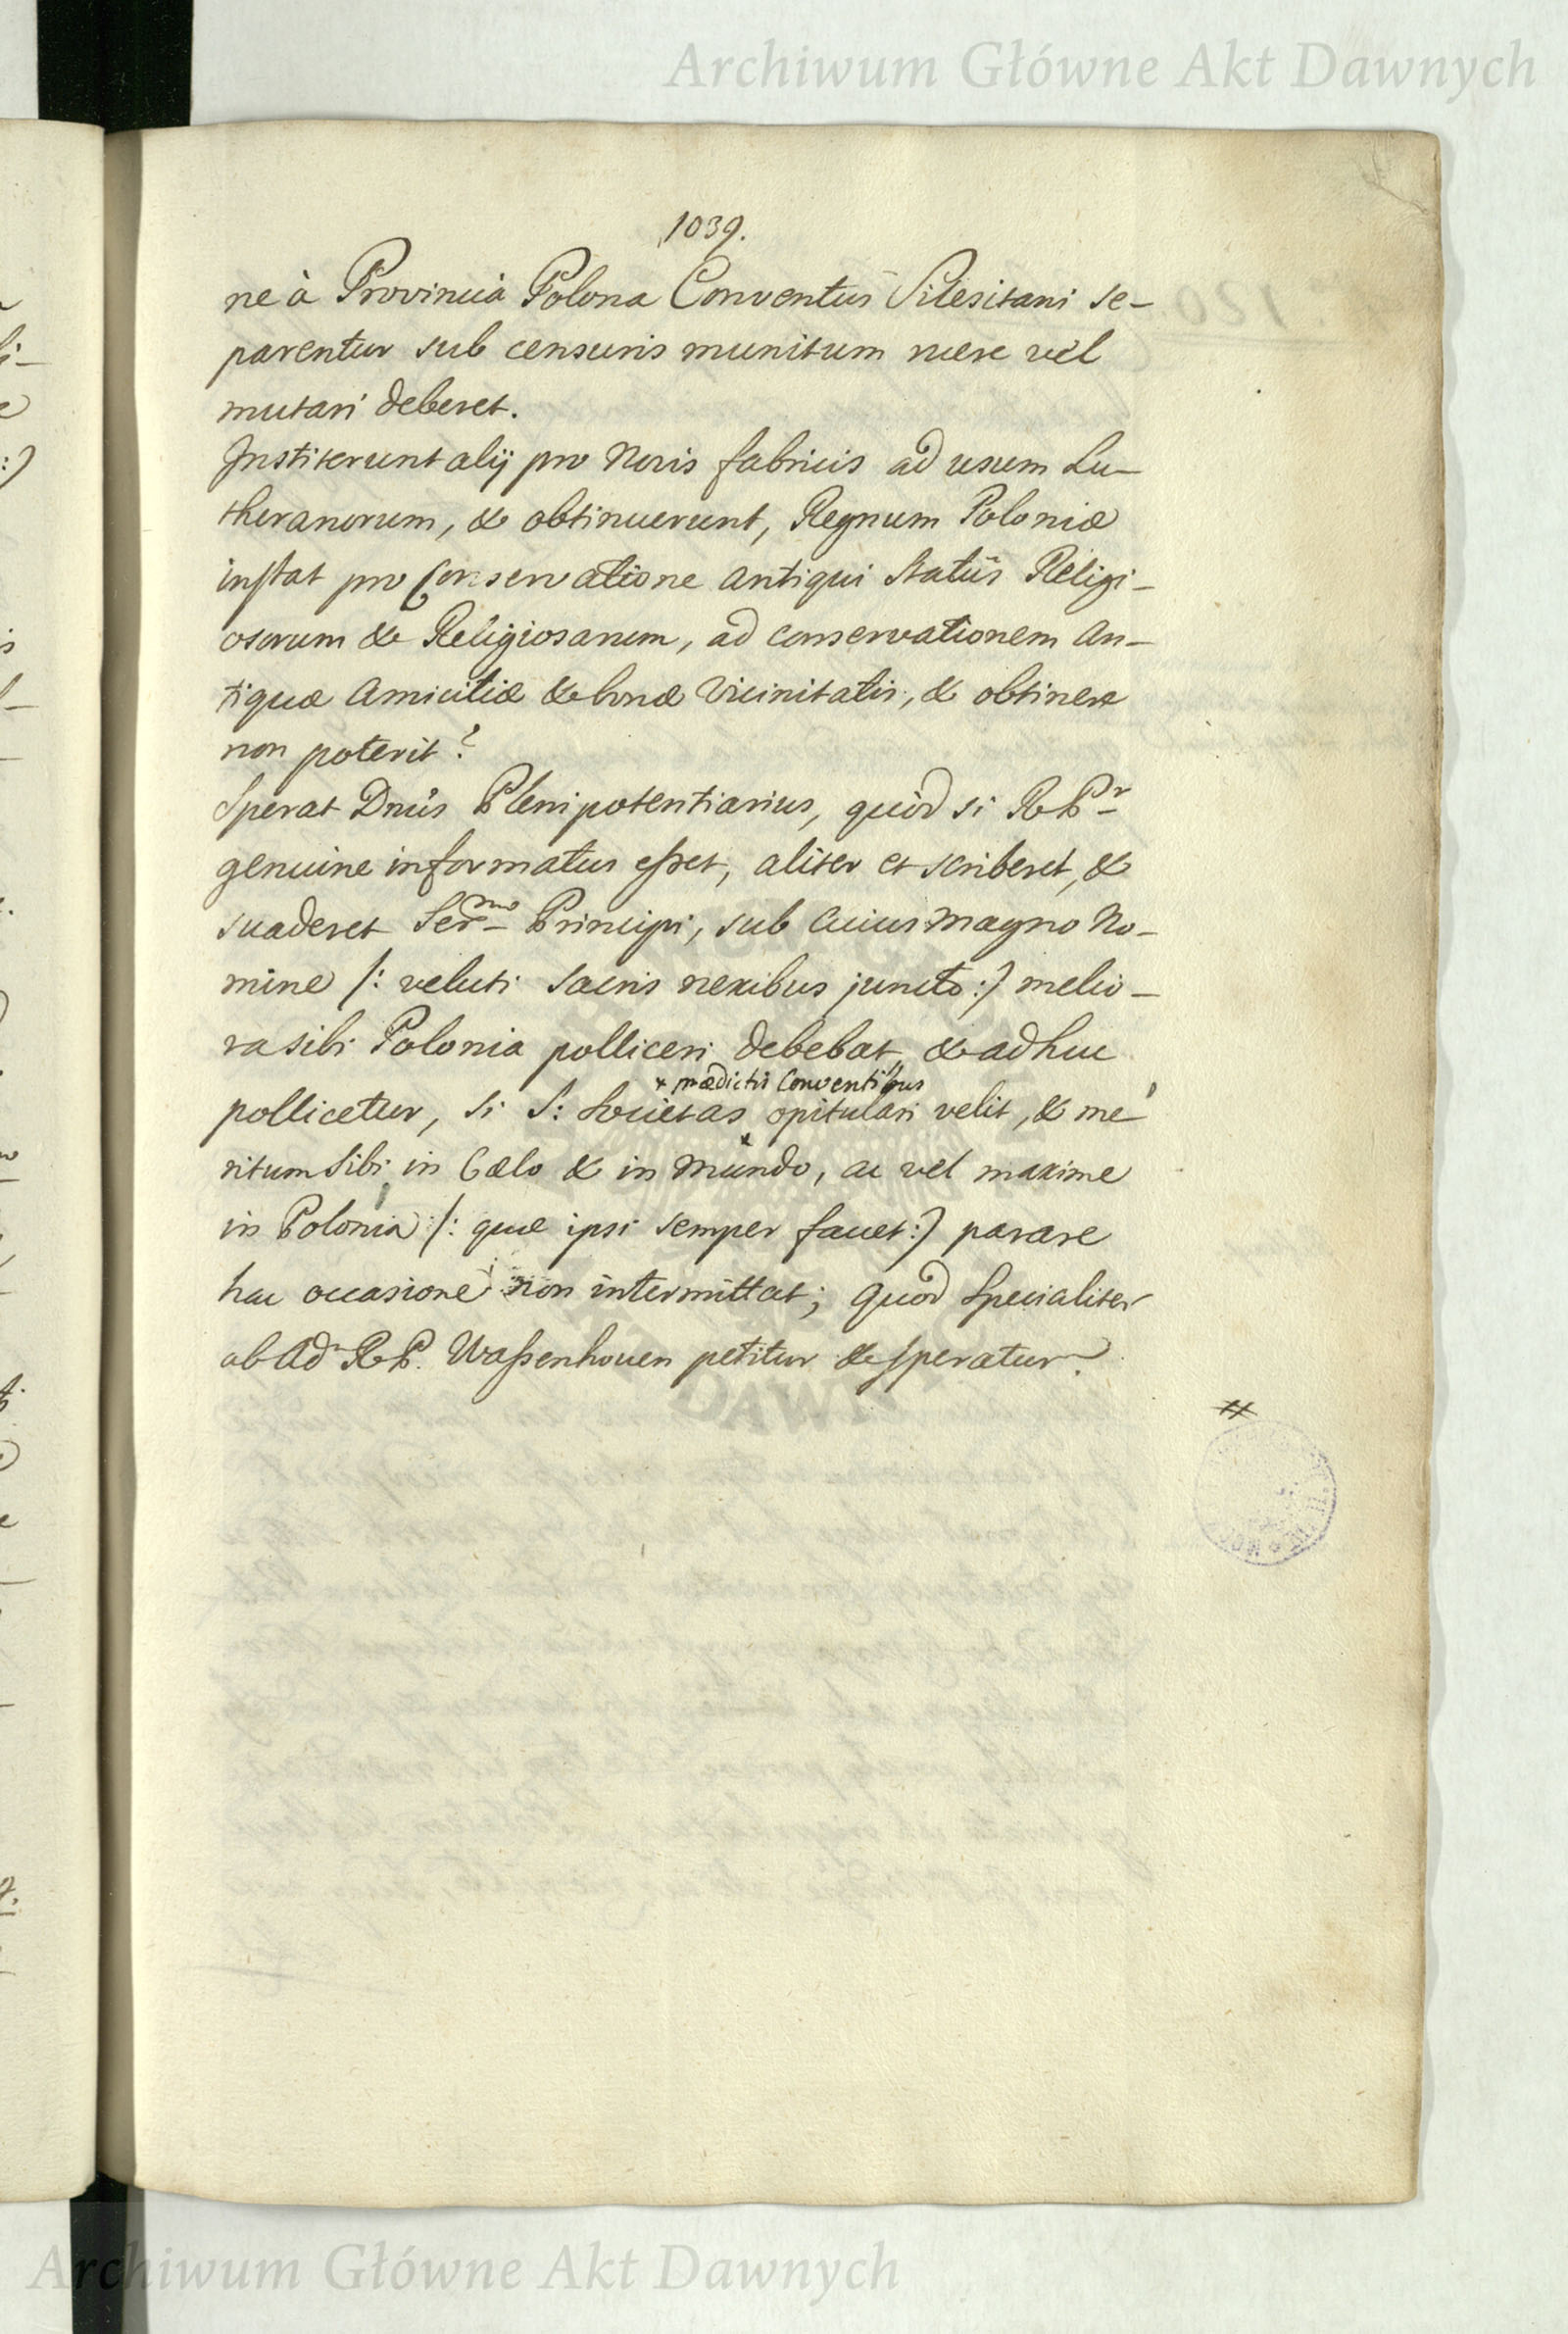 Archiwum Główne Akt Dawnych
1039.
ne à Provincia Polona Conventus Silesitani se-
parentur sub censuris munitum ruere vel
mutari deberet.
Institerunt alij pro Novis fabricis ad usum Lu-
theranorum, & obtinuerunt, Regnum Poloniæ
instat pro Conservatione antiqui Statûs Religi-
osorum & Religiosarum, ad conservationem an-
tiquæ Amicitiæ & bonæ Vicinitatis, & obtinere
non poterit?
Sperat Dnus Plenipotentiarius, quòd si R P r
genuine informatus esset, aliter et scriberet, &
suaderet Ser mo Principi, sub cuius Magno No-
mine /: veluti sacris nexibus juncto :/ melio-
ra sibi Polonia polliceri debebat, & adhuc
x prædictis Conventibus
pollicetur, si S: Societas opitulari velit, & me
ritum sibi in Cælo & in Mundo, ac vel maxime
in Polonia /: quæ ipsi semper favet :/ parare
hac occasione non intermittat; quod specialiter
ab Ad R P. Wassenhouen petitur & speratur.
Archiwum Główne Akt Dawnych